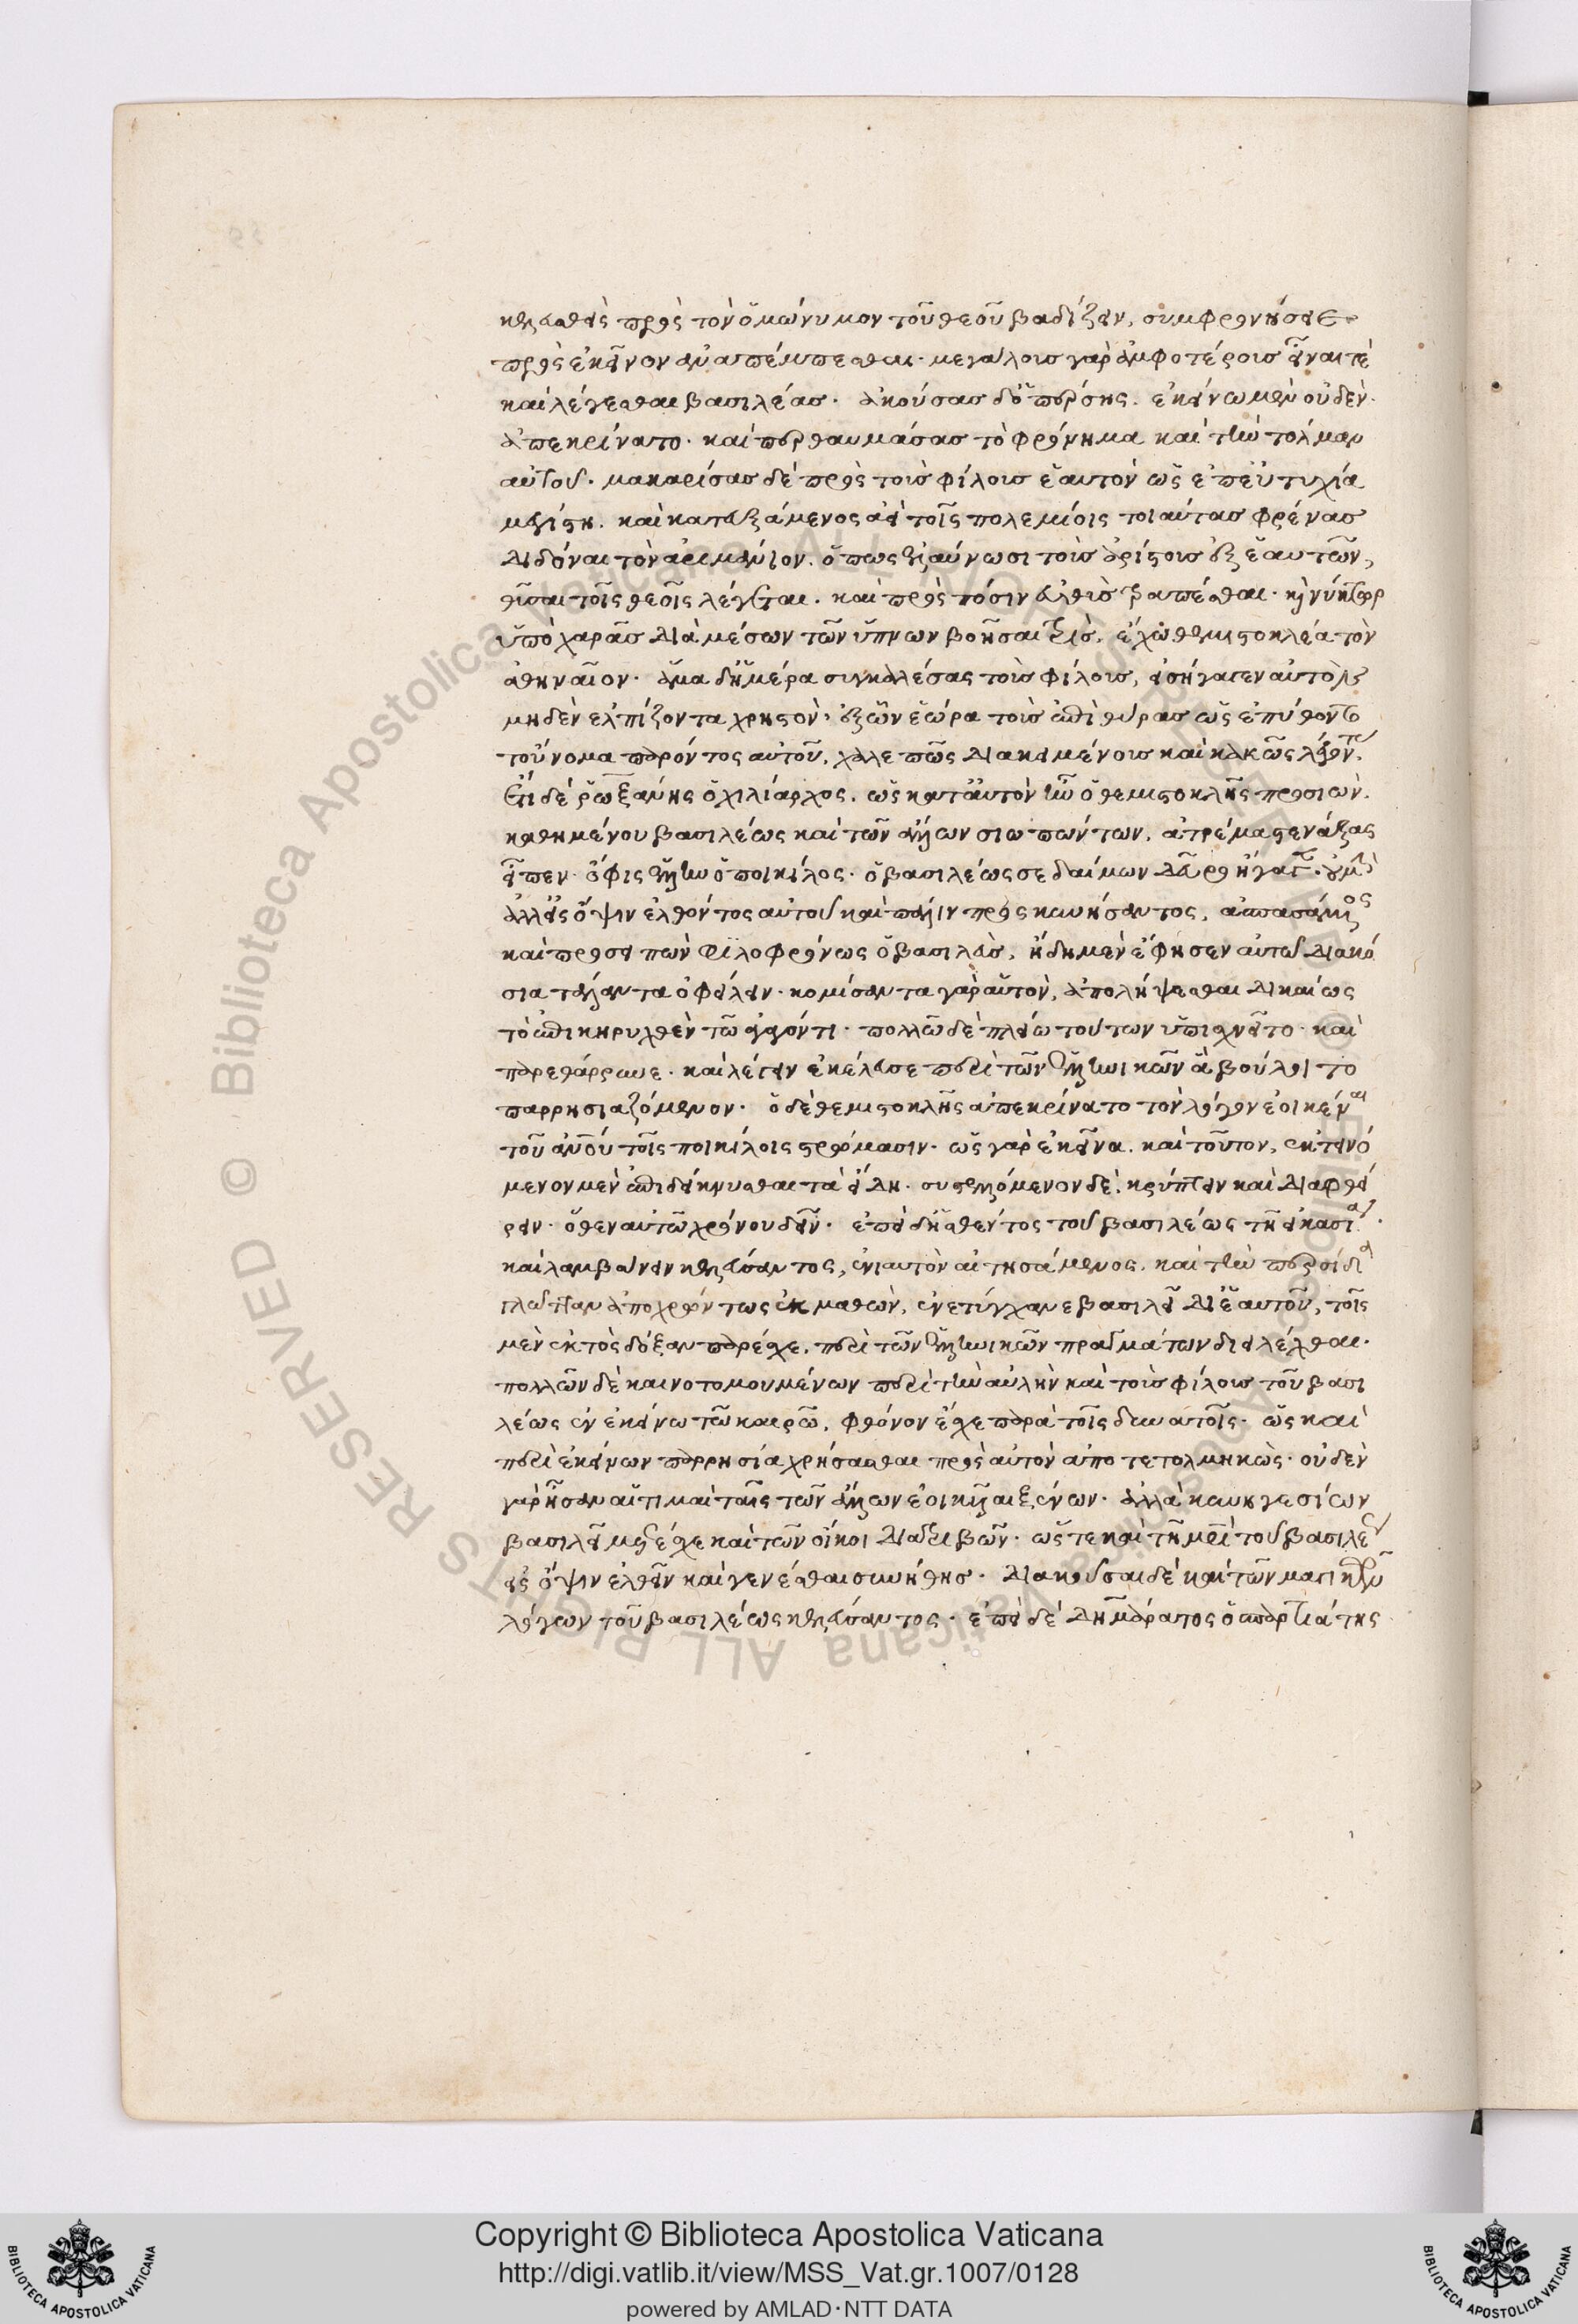 κελευσθεὶς πρὸς τὸν ὁμώνυμον τοῦ θεοῦ βαδίζειν, συμφρονήσειε
πρὸς ἐκεῖνον ἀναπέμπεσθαι. μεγάλους γὰρ ἀμφοτέρους εἶναι τὲ
καὶ λέγεσθαι βασιλέας. ἀκούσας δ' ὁ πέρσης. ἐκείνω μὲν οὐδὲν
ἀπεκρίνατο. καίπερ θαυμάσας τὸ φρόνημα καὶ τὴν τόλμαν
αὐτοῦ. μακαρίσας δὲ πρὸς τοὺς φίλους ἑαυτὸν ὡς ἐπ' εὐτυχία
μεγίστη. καὶ κατευξάμενος ἀεὶ τοῖς πολεμίοις τοιαύτας φρένας
διδόναι τὸν ἀριμάνιον. ὅπως ἐξελαύνωσι τοὺς ἀρίστους ἐξ ἑαυτῶν,
θῦσαι τοῖς θεοῖς λέγεται. καὶ πρὸς πόσιν εὐθὺς τραπέσθαι. καὶ νύκτωρ
ὑπὸ χαρᾶς διὰ μέσων τῶν ὕπνων βοῆσαι τρὶς. ἔχω θεμιστοκλέα τὸν
ἀθηναῖον. ἅμα δ' ἡμέρα συγκαλέσας τοὺς φίλους, εἰσήγαγεν αὐτὸν
μηδὲν ἐλπίζοντα χρηστὸν. ἐξ ὧν ἑώρα τοὺς ἐπὶ θύρας ὡς ἐπύθοντο
τοὔνομα παρόντος αὐτοῦ, χαλεπῶς διακειμένους καὶ κακῶς λέγοντας.
ἔτι δὲ ῥωξάνης ὁ χιλίαρχος. ὡς κατ' αὐτὸν ἦν ὁ θεμιστοκλῆς προσιὼν.
καθημένου βασιλέως καὶ τῶν ἄλλων σιωπώντων, ἀτρέμα στενάξας
εἶπεν. ὄφις ἕλλην ὁ ποικίλος. ὁ βασιλέως σε δαίμων δεῦρο ἤγαγεν. οὐ μὴν
ἀλλ' εἰς ὄψιν ἐλθόντος αὐτοῦ καὶ πάλιν προσκυνήσαντος, ἀσπασάμενος
καὶ προσειπὼν φιλοφρόνως ὁ βασιλεὺς, ἤδη μὲν ἔφησεν αὐτῶ διακό
σια τάλαντα ὀφείλειν. κομίσαντα γὰρ αὑτὸν, ἀπολήψεσθαι δικαίως
τὸ ἐπικηρυχθὲν τῶ ἀγαγόντι. πολλῶ δὲ πλείω τούτων ὑπισχνεῖτο. καὶ
παρεθάρσυνε. καὶ λέγειν ἐκέλευσε περὶ τῶν ἑλληνικῶν ἃ βούλοιτο
παρρησιαζόμενον. ὁ δὲ θεμιστοκλῆς ἀπεκρίνατο τὸν λόγον ἐοικέναι
τοῦ ἀνθρώπου τοῖς ποικίλοις στρώμασιν. ὡς γὰρ ἐκεῖνα. καὶ τοῦτον, ἐκτεινό
μενον μὲν ἐπιδείκνυσθαι τὰ εἴδη. συστελλόμενον δὲ, κρύπτειν καὶ διαφθεί
ρειν. ὅθεν αὐτῶ χρόνου δεῖν. ἐπεὶ δ' ἡσθέντος τοῦ βασιλέως τῆ εἰκασία.
καὶ λαμβάνειν κελεύσαντος, ἐνιαυτὸν αἰτησάμενος. καὶ τὴν περσίδα
γλῶτταν ἀποχρώντως ἐκμαθὼν, ἐνετύγχανε βασιλεῖ δι' ἑαυτοῦ, τοῖς
μὲν ἐκτὸς δόξαν παρέσχε. περὶ τῶν ἑλληνικῶν πραγμάτων διειλέχθαι.
πολλῶν δὲ καινοτομουμένων περὶ τὴν αὐλὴν καὶ τοὺς φίλους τοῦ βασι
λέως ἐν ἐκείνω τῶ καιρῶ, φθόνον ἔσχε παρὰ τοῖς δυνατοῖς. ὡς καὶ
περὶ ἐκείνων παρρησία χρήσασθαι πρὸς αὐτὸν ἀποτετολμηκὼς. οὐδὲν
γὰρ ἦσαν αἱ τιμαὶ ταῖς τῶν ἄλλων ἐοικυῖαι ξένων. ἀλλὰ κυνηγεσίων
βασιλεῖ μετέσχε καὶ τῶν οἴκοι διατριβῶν. ὥστε καὶ τῆ μητρὶ τοῦ βασιλέως
εἰς ὄψιν ἐλθεῖν καὶ γενέσθαι συνήθης. διακοῦσαι δὲ καὶ τῶν μαγικῶν
λόγων τοῦ βασιλέως κελεύσαντος. ἐπεὶ δὲ δημάρατος ὁ σπαρτιάτης
Copyright © Biblioteca Apostolica Vaticana
http://digi.vatlib.it/view/MSS_Vat.gr.1007/0128
powered by AMLAD·NTT DATA